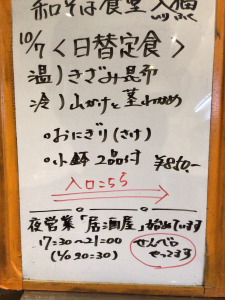 和そば食堂 入福
10/7 <日替定食>
温)きざみ昆布
冷)山かけと茎わかめ
○おにぎり(さけ)
○小鉢2品付 ¥850-
入口こちら
夜営業「居酒屋」始めています
17:30〜21:00
(L/O 20:30)
せんべろ
やってます